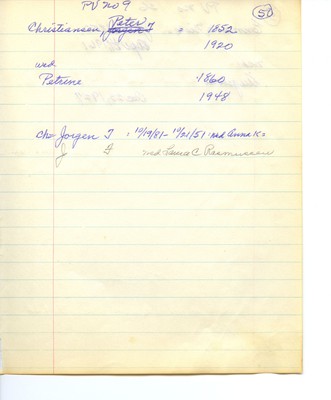 PV no 9
50
Christiansen, Peter : 1852
1920
wed.
Petrine 1860
1948
Ch- Jorgen T : 10/19/81 - 10/21/51 : md Anna K
J md Laura C. Rasmussen